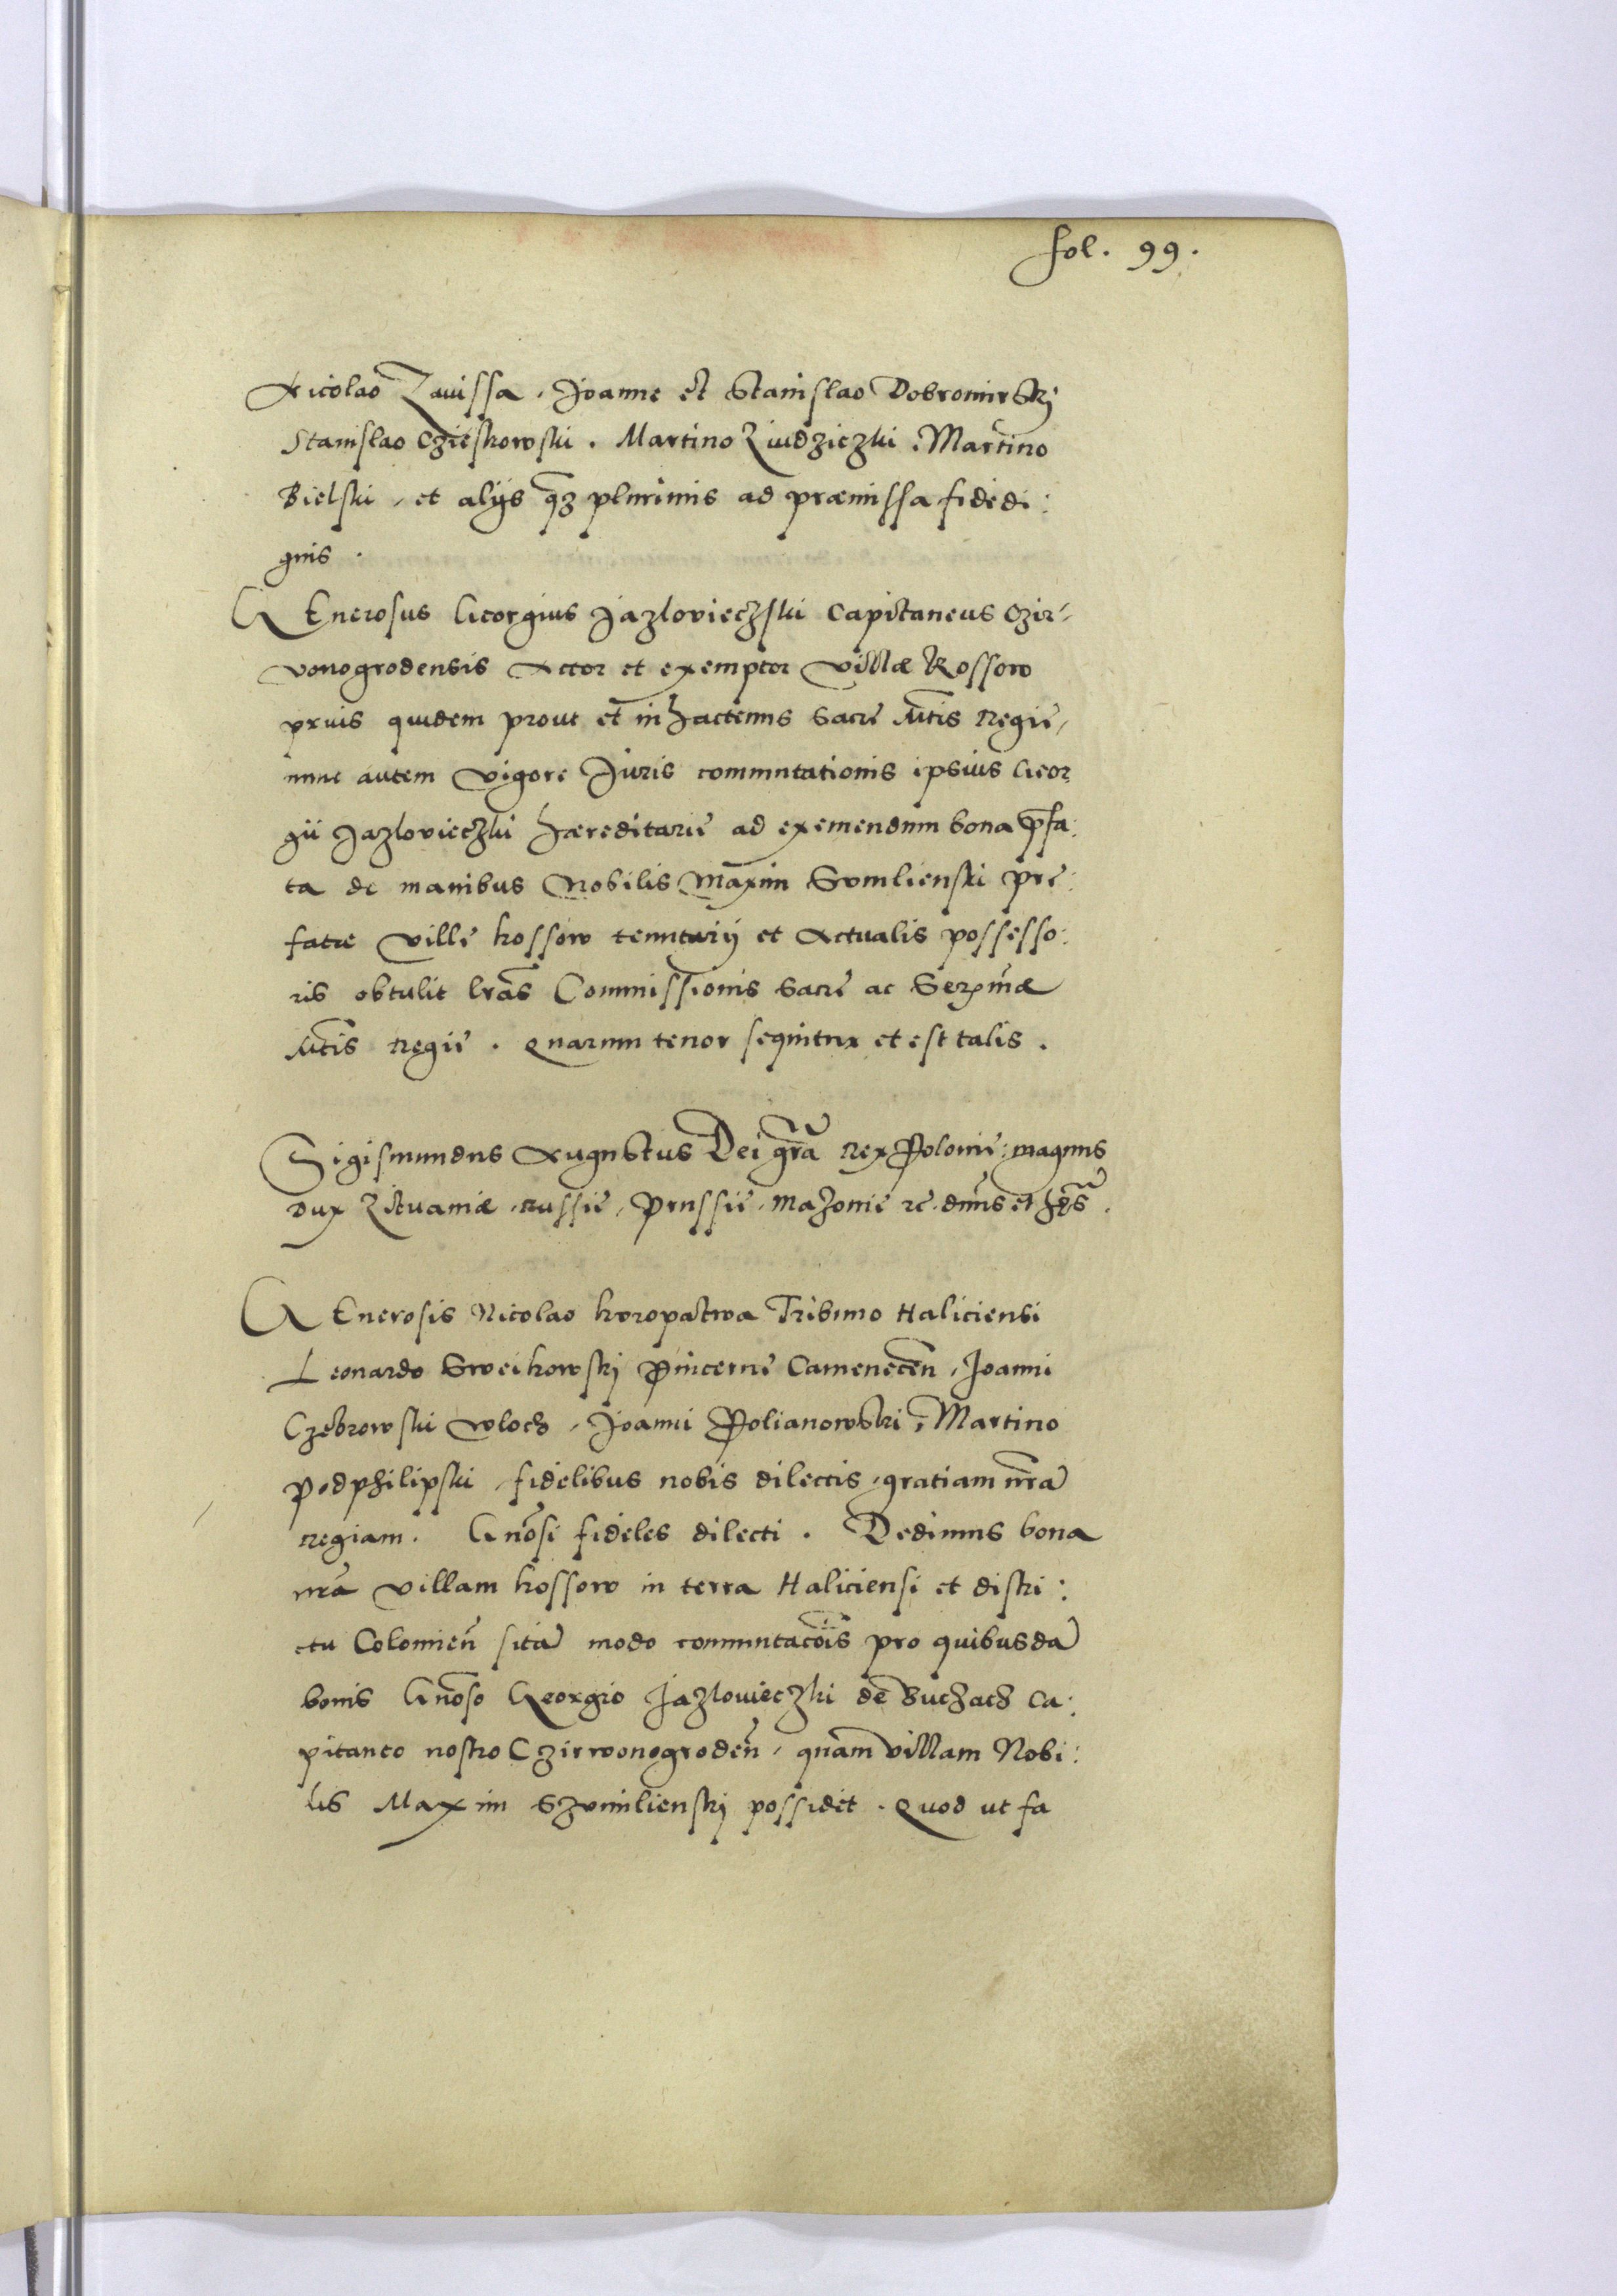 fol. 99.
Nicolao Zauissa, Joanne et Stanislao Dobromirskj
Stanislao Czieskowski. Martino Ziudziczki, Martino
Bielski, et alijs qz plurimis ad præmissa fidedi:
gnis.
GEnerosus Georgius Jazlovieczski Capitaneus Czir-
vonogrodensis Actor et exemptor villæ Kossow
prius quidem prout et in hactenus Sacrę Mtis Regię,
nunc autem vigore Juris commutationis ipsius Geor
gii Jazlovieczki hæreditarię ad exemendum bona pfa:
ta de manibus Nobilis Maxim Somlienski prę:
fatæ villę Kossow tenutarij et Actualis possesso:
ris obtulit lras Commissionis Sacrę ac Serxmæ
Mtis Regię. Quarum tenor sequitur et est talis.
Sigismundus Augustus Dei gra Rex Polonię: magnus
Dux Lituaniæ, Russię, Prussię, Mazonię &c. dnus et hęs.
GEnerosis Nicolao Koropatwa Tribuno Haliciensi
Leonardo Sweikowskj Pincernę Camenecen, Joanni
Czebrowski Wloch, Joanni Polianowski, Martino
Podphilipski, fidelibus nobis dilectis, gratiam nra
Regiam. Gnosi fideles dilecti. Dedimus bona
nra villam Kossow in terra Haliciensi et distri:
ctu Colomien sita modo commutacois pro quibusda
bonis Gnoso Georgio Jazlouieczki de Buchach Ca:
pitaneo nostro Czirwonogroden, quam villam Nobi:
lis Maxim Szomlienskj possidet. Quod ut fa